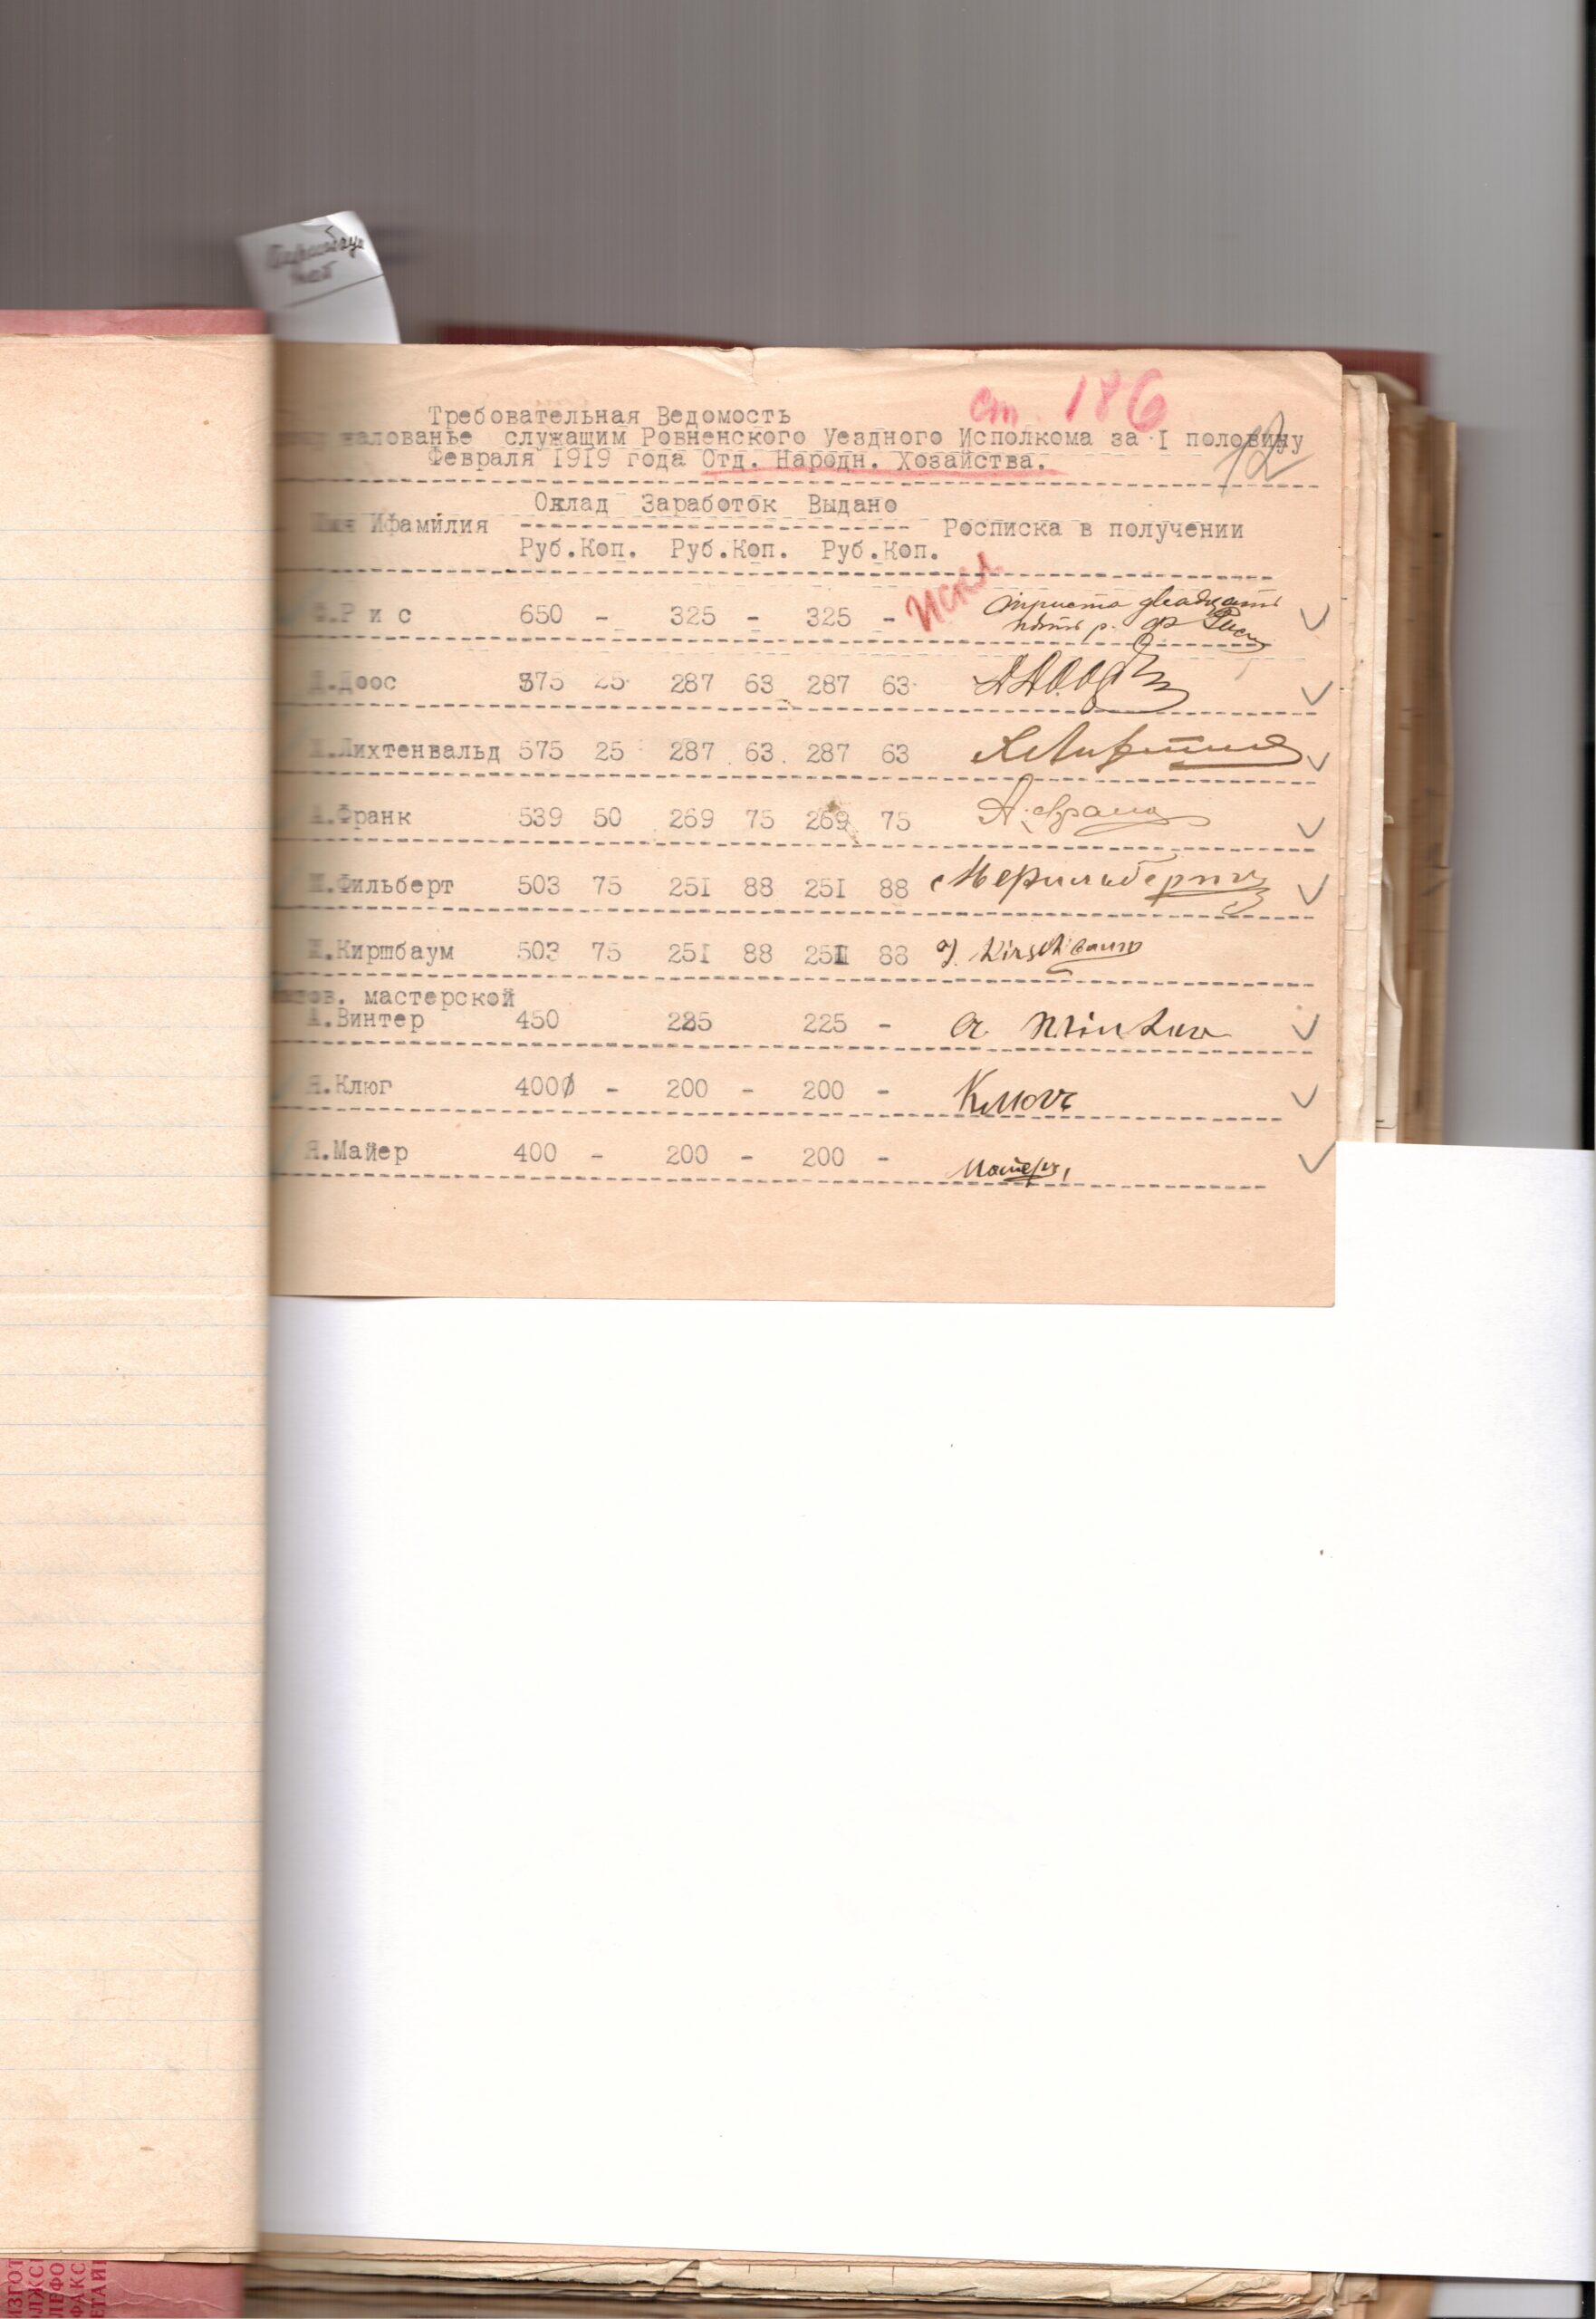 ст. 186
12
Требовательная Ведомость
жалованье служащим Ровненского Уездного Исполкома за I половину
Февраля 1919 года Отд. Народн. Хозайства.
Оклад Заработок Выдано
Имя Ифамилия Росписка в получении
Руб.Коп. Руб.Коп. Руб.Коп.
искл.
Р и с 650 - 325 - 325 - триста двадцать
пять р. Ф Рис
Доос 575 25 287 63 287 63
Лихтенвальд 575 25 287 63 287 63
А.Франк 539 50 269 75 269 75 А. Франк
Фильберт 503 75 25I 88 25I 88
Киршбаум 503 75 25I 88 25I 88 J. Kirschbaum
мастерской
А.Винтер 450 225 225 - A. Winter
Я.Клюг 400 - 200 - 200 - Клюгъ
Я.Майер 400 - 200 - 200 - Майеръ